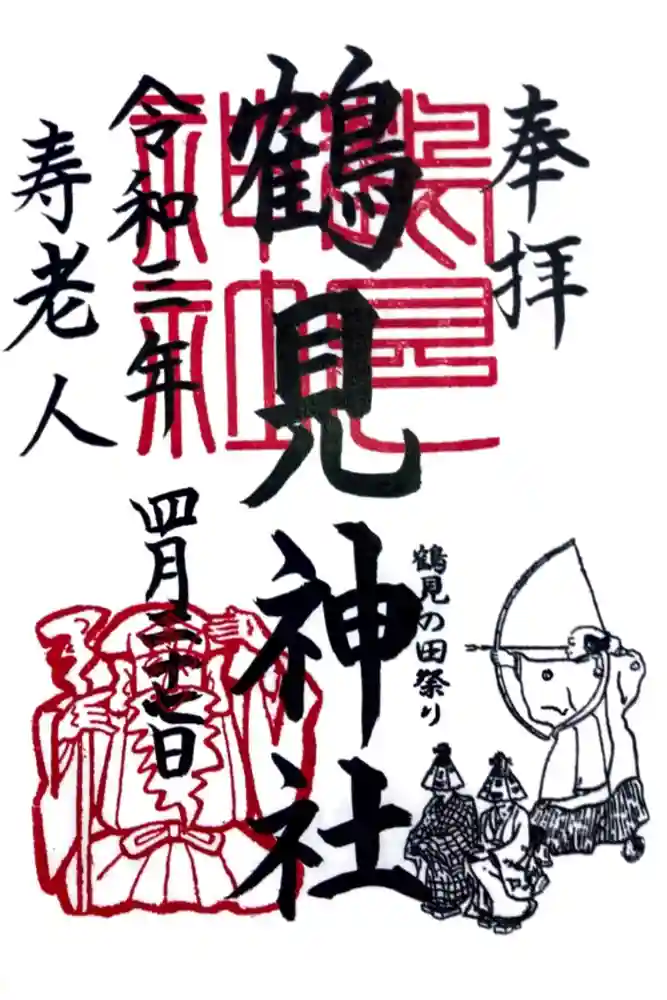 奉拝
鶴見神社
鶴見の田祭り
令和三年
四月二十七日
寿老人
鶴見
神社